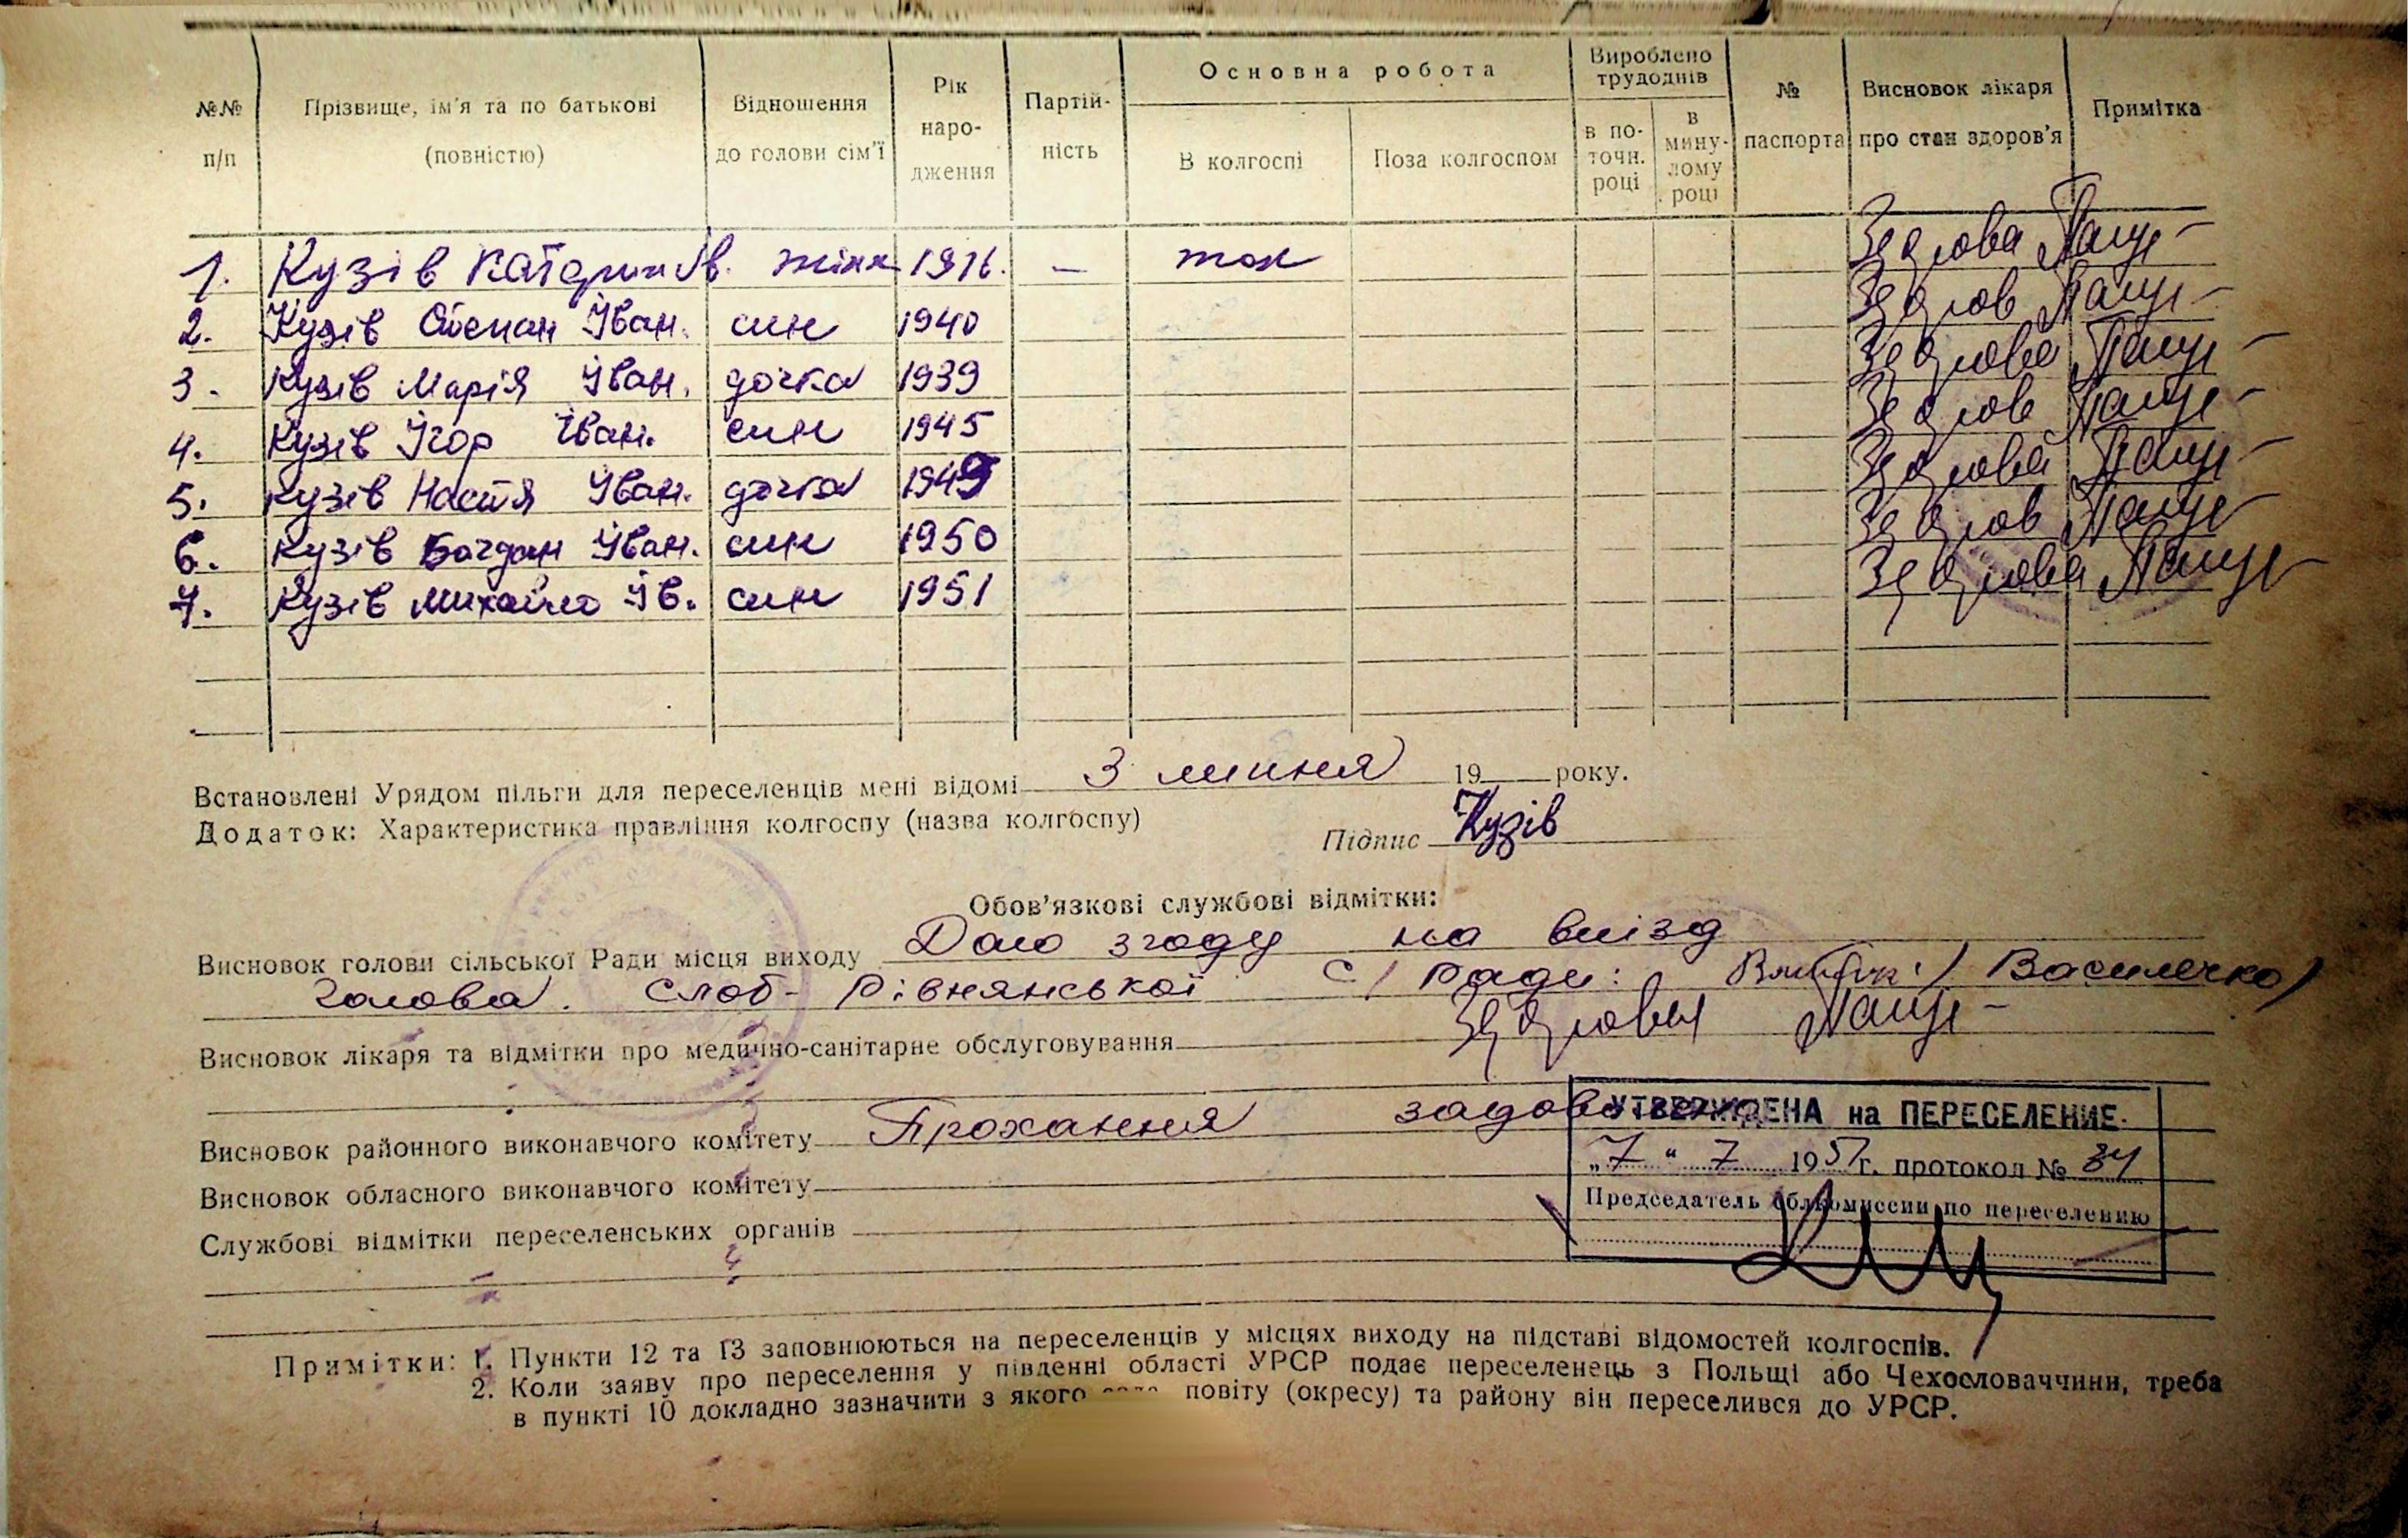 №№ п/п Прізвище, ім'я та по батькові (повністю) Відношення до голови сім'ї Рік наро-дження Партій-ність Основна робота В колгоспі Поза колгоспом Вироблено трудоднів в по-точн. році в мину-лому році № паспорта Висновок лікаря про стан здоров'я Примітка
1. Кузів Катерин Ів. жінк 1916. — Здорова
2. Кузів Степан Іван. син 1940 Здоров
3. Кузів Марія Іван. дочка 1939 Здорова
4. Кузів Ігор Іван. син 1945 Здоров
5. Кузів Настя Іван. дочка 1949 Здорова
6. Кузів Богдан Іван. син 1950 Здоров
7. Кузів Михайло Ів. син 1951
Встановлені Урядом пільги для переселенців мені відомі 3 липня 19 року.
Додаток: Характеристика правління колгоспу (назва колгоспу)
Підпис Кузів
Обов'язкові службові відмітки:
Висновок голови сільської Ради місця виходу Даю згоду на виїзд
Голова. Слоб-Рівнянської с/Ради: /Василечко/
Висновок лікаря та відмітки про медично-санітарне обслуговування
Висновок районного виконавчого комітету Прохання
УТВЕРЖДЕНА на ПЕРЕСЕЛЕНИЕ.
„7“ 7 1951г. протокол №
Висновок обласного виконавчого комітету
Председатель облкомиссии по переселению
Службові відмітки переселенських органів
Примітки: 1. Пункти 12 та 13 заповнюються на переселенців у місцях виходу на підставі відомостей колгоспів.
2. Коли заяву про переселення у південні області УРСР подає переселенець з Польщі або Чехословаччини, треба
в пункті 10 докладно зазначити з якого повіту (окресу) та району він переселився до УРСР.